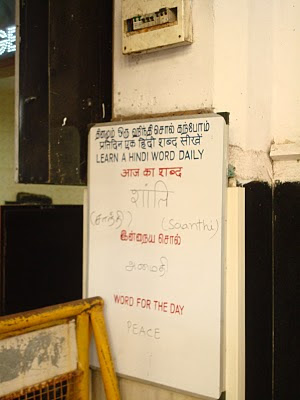 தினமும் ஒரு ஹிந்தி சொல் கற்போம்
प्रतिदिन एक हिंदी शब्द सीखें
LEARN A HINDI WORD DAILY
आज का शब्द
शांति
(சாந்தி) (Saanthi)
இன்றைய சொல்
அமைதி
WORD FOR THE DAY
PEACE